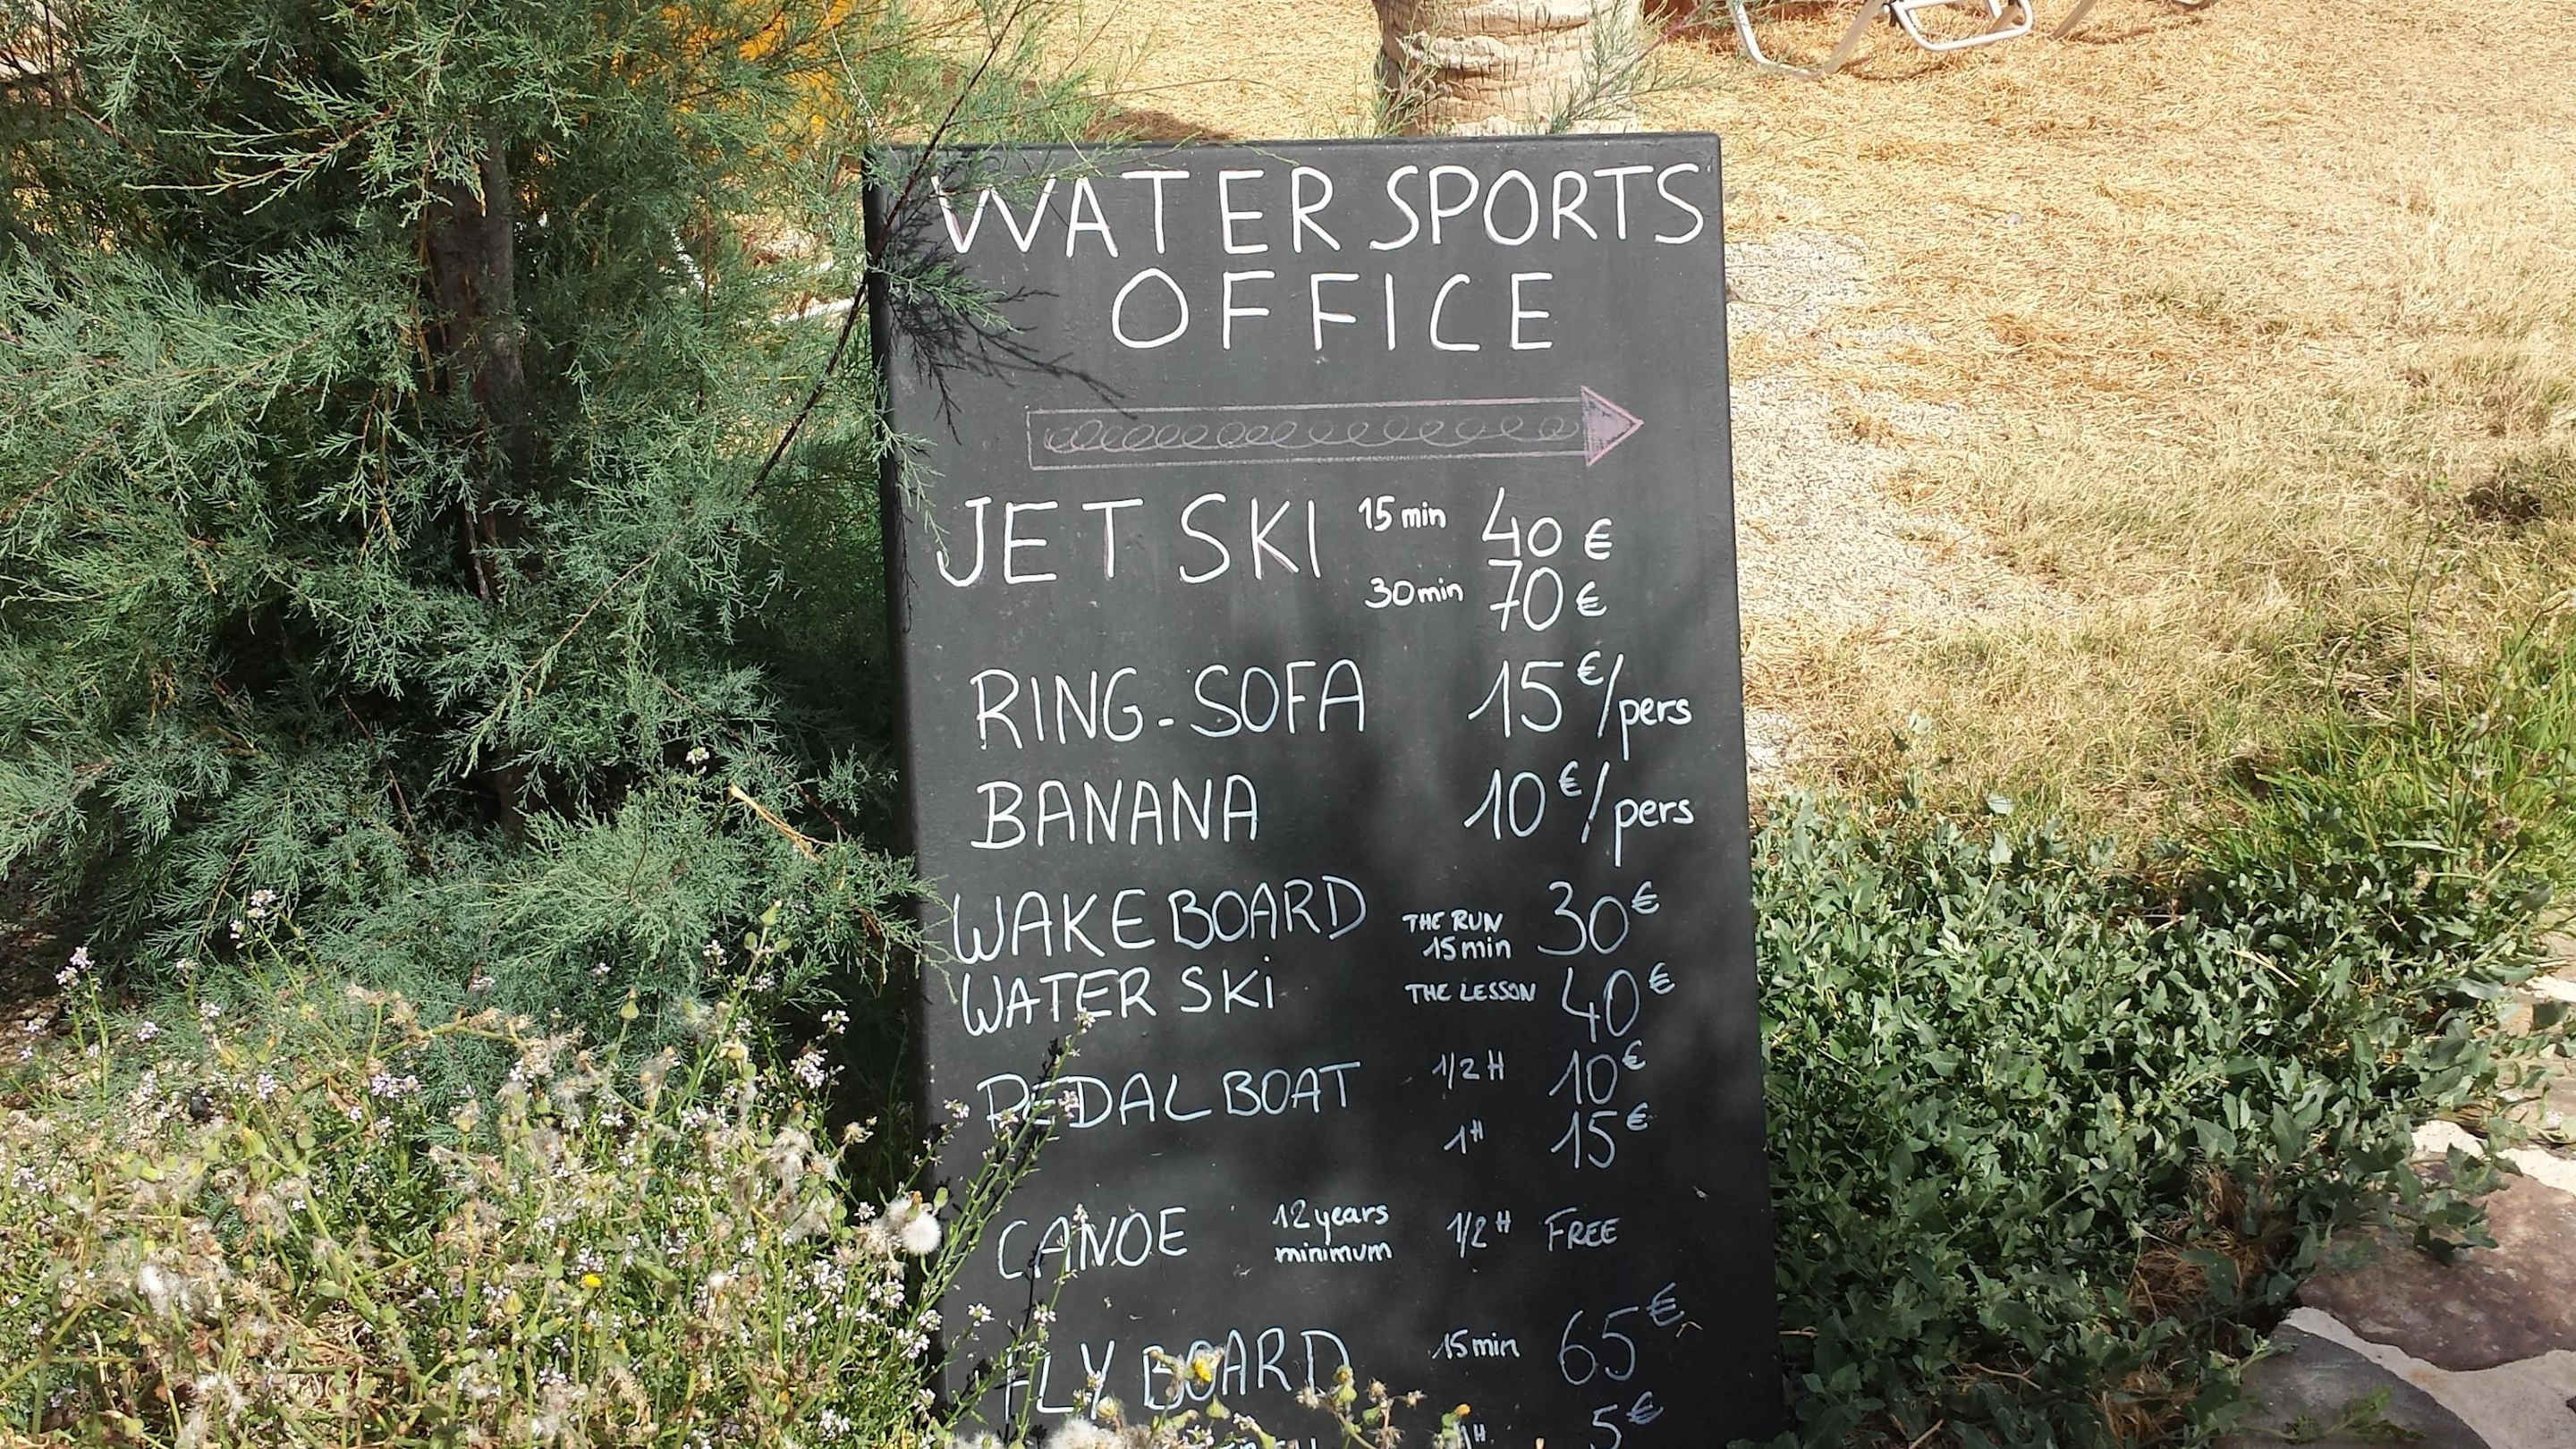 WATER SPORTS
OFFICE
JET SKI 15 min 40 €
30 min 70 €
RING-SOFA 15 €/pers
BANANA 10 €/pers
WAKE BOARD THE RUN 15 min 30 €
WATER SKi THE LESSON 40 €
PEDAL BOAT 1/2 H 10 €
1 H 15 €
CANOE 12 years minimum 1/2 H FREE
FLY BOARD 15 min 65 €
5 €